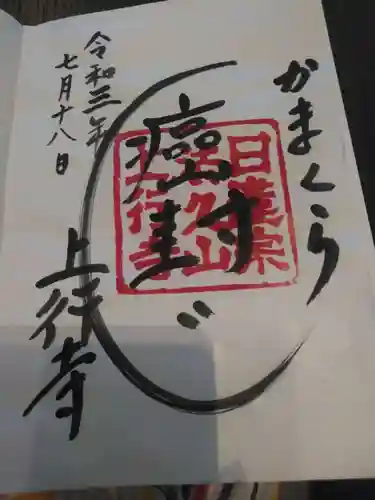 かまくら
癌封じ
日蓮宗
法久山
上行寺
令和三年
七月十八日
上行寺